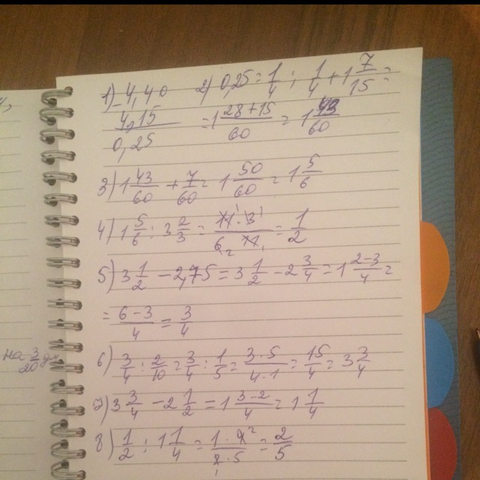 1) 4,40 2) 0,25 = 1/4 ; 1/4 + 1 7/15 =
- 4,15 = 1 28+15/60 = 1 43/60
0,25
3) 1 43/60 + 7/60 = 1 50/60 = 1 5/6
4) 1 5/6 : 3 2/3 = 11·3/6·11 = 1/2
5) 3 1/2 - 2,75 = 3 1/2 - 2 3/4 = 1 2-3/4 =
= 6-3/4 = 3/4
на 3/20
6) 3/4 : 2/10 = 3/4 : 1/5 = 3·5/4·1 = 15/4 = 3 3/4
7) 3 3/4 - 2 1/2 = 1 3-2/4 = 1 1/4
8) 1/2 : 1 1/4 = 1·4/2·5 = 2/5